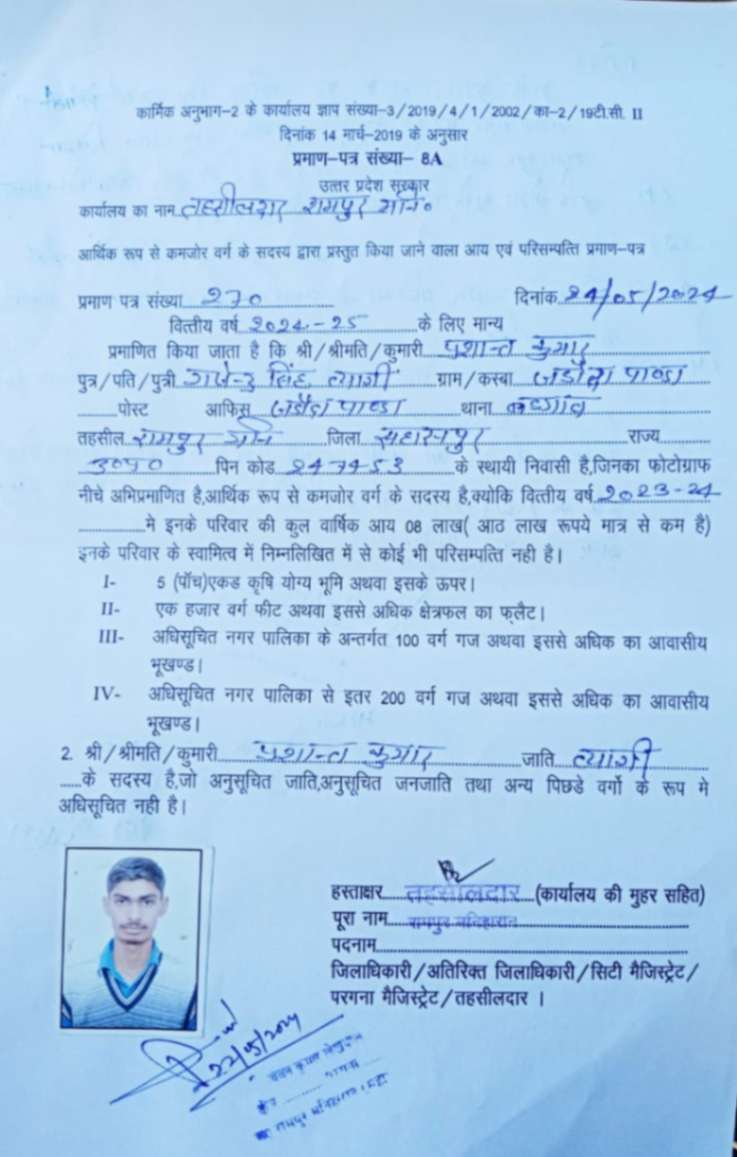 कार्मिक अनुभाग-2 के कार्यालय ज्ञाप संख्या-3/2019/4/1/2002/का-2/19टी.सी. II
दिनांक 14 मार्च-2019 के अनुसार
प्रमाण-पत्र संख्या- 8A
उत्तर प्रदेश सरकार
कार्यालय का नाम तहसीलदार रामपुर मनि०
आर्थिक रूप से कमजोर वर्ग के सदस्य द्वारा प्रस्तुत किया जाने वाला आय एवं परिसम्पत्ति प्रमाण-पत्र
प्रमाण पत्र संख्या 270 दिनांक 24/05/2024
वित्तीय वर्ष 2024-25 के लिए मान्य
प्रमाणित किया जाता है कि श्री/श्रीमति/कुमारी प्रशान्त कुमार
पुत्र/पति/पुत्री राजेन्द्र सिंह त्यागी ग्राम/कस्बा जडौदा पाण्डा
पोस्ट आफिस जडौदा पाण्डा थाना बडगांव
तहसील रामपुर मनि जिला सहारनपुर राज्य
उ०प्र० पिन कोड 247453 के स्थायी निवासी है,जिनका फोटोग्राफ
नीचे अभिप्रमाणित है,आर्थिक रूप से कमजोर वर्ग के सदस्य है,क्योकि वित्तीय वर्ष 2023-24
मे इनके परिवार की कुल वार्षिक आय 08 लाख( आठ लाख रूपये मात्र से कम है)
इनके परिवार के स्वामित्व में निम्नलिखित में से कोई भी परिसम्पत्ति नही है।
I- 5 (पॉच)एकड कृषि योग्य भूमि अथवा इसके ऊपर।
II- एक हजार वर्ग फीट अथवा इससे अधिक क्षेत्रफल का फ्लैट।
III- अधिसूचित नगर पालिका के अन्तर्गत 100 वर्ग गज अथवा इससे अधिक का आवासीय
भूखण्ड।
IV- अधिसूचित नगर पालिका से इतर 200 वर्ग गज अथवा इससे अधिक का आवासीय
भूखण्ड।
2. श्री/श्रीमति/कुमारी प्रशान्त कुमार जाति त्यागी
के सदस्य है,जो अनुसूचित जाति,अनुसूचित जनजाति तथा अन्य पिछडे वर्गो के रूप मे
अधिसूचित नही है।
हस्ताक्षर तहसीलदार (कार्यालय की मुहर सहित)
पूरा नाम रामपुर मनिहारान
पदनाम
जिलाधिकारी/अतिरिक्त जिलाधिकारी/सिटी मैजिस्ट्रेट/
परगना मैजिस्ट्रेट/तहसीलदार ।
22/5/2024